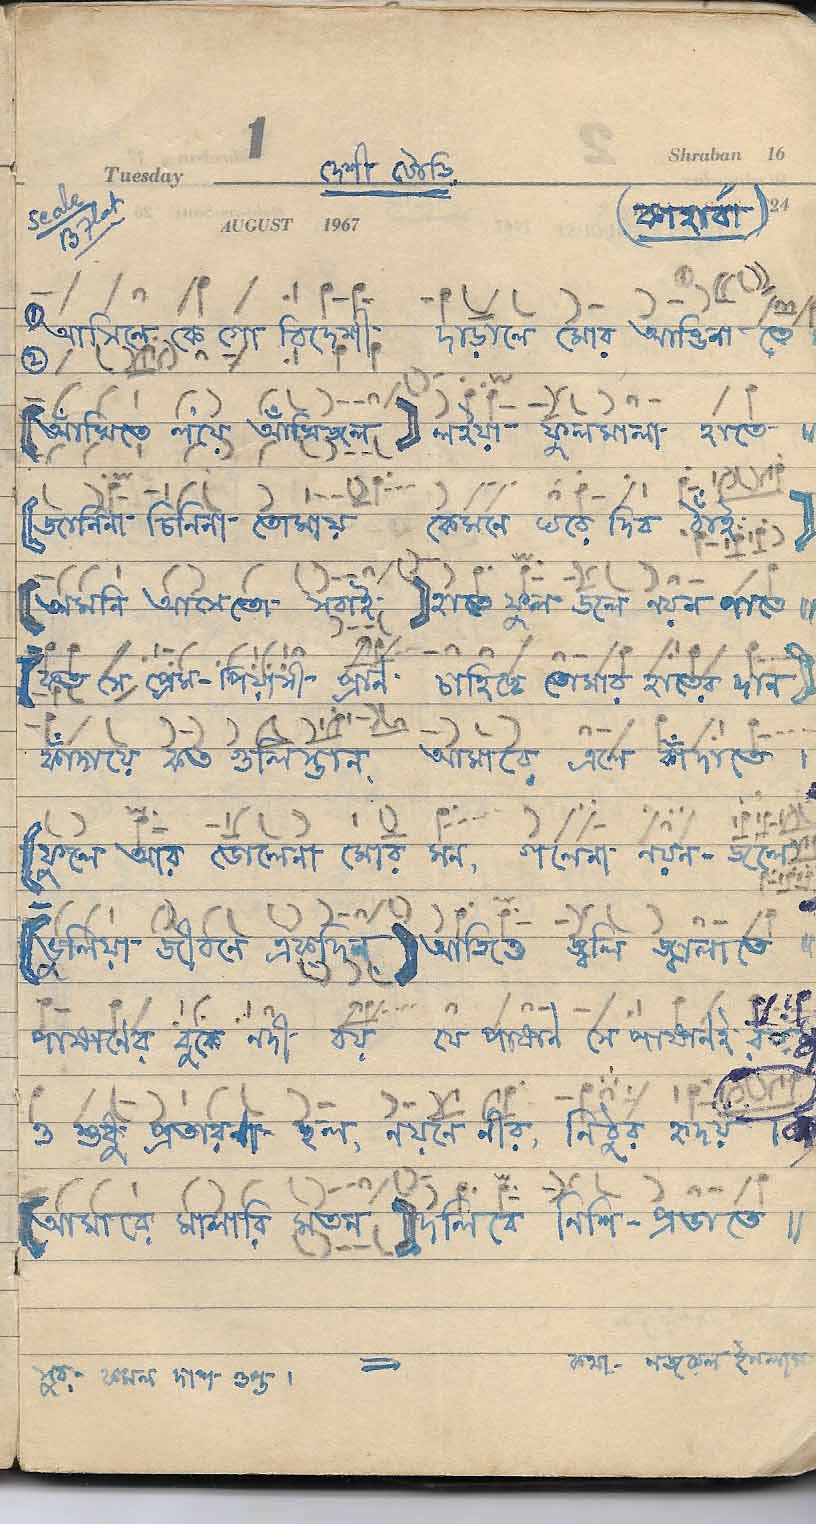 1
Tuesday
Shraban 16
দেশী টোড়ি
24
scale
B flat
AUGUST 1967
(কাহার্বা)
① আসিলে কে গো বিদেশী দাঁড়ালে মোর আঙিনাতে
②
[আঁখিতে লয়ে আঁখিজলে] লইয়া ফুলমালা হাতে ॥
[জানিনা চিনিনা তোমায় কেমনে ঘরে দিব ঠাঁই]
[অমনি আসে তো সবাই] হাতে ফুল জলে নয়ন পাতে ॥
[কত সে প্রেম-পিয়াসী প্রান চাহিছে তোমার হাতের দান]
কাঁদায়ে কত গুলিস্তান, আমারে এলে কাঁদাতে ।
[ফুলে আর ভোলেনা মোর মন, গলেনা নয়ন-জলে
[ভুলিয়া জীবনে একদিন] আজিও জ্বলি জ্বালাতে ॥
পাষানের বুকে নদী বয় যে পাষান সে পাষানই রয়
ও শুধু প্রতারনা ছল, নয়নে নীর, নিঠুর হৃদয় ।
[আমারে মালারি মতন] দলিবে নিশি-প্রভাতে ॥
সুর- কমল দাশ গুপ্ত । কথা- নজরুল ইসলাম